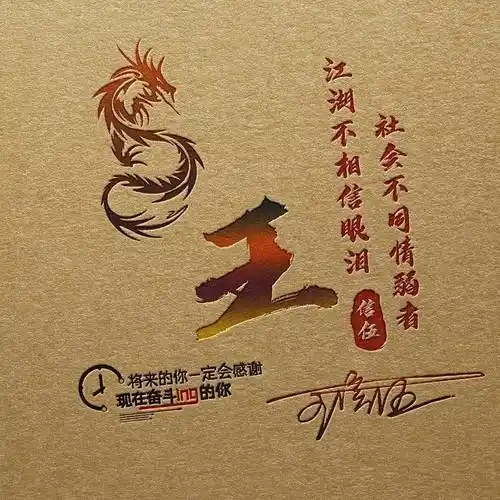 江湖不相信眼泪
社会不同情弱者
王
信伍
将来的你一定会感谢
现在奋斗ing的你
王信伍